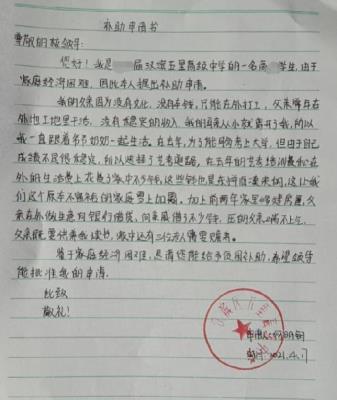 补助申请书
尊敬的校领导:
您好！我是 届汉滨五里高级中学的一名高 学生,由于
家庭经济困难,因此本人提出补助申请。
我的父亲因为没有文化,没有本钱,只能在外打工,父亲常年在
外地工地里干活,没有稳定的收入,我的母亲从小就离开了我,所以
我一直跟着爷爷奶奶一起生活。在去年,为了能够考上大学,但由于自己
成绩不是很稳定,所以选择了艺考道路,在去年的艺考培训费和在
外的生活费上花费了家中不少钱,这些钱也是东拼西凑来的,这让我
们这个原本不富裕的家庭雪上加霜。加上前两年家里修建房屋,父
亲在外做生意向银行借贷,向亲属借了不少钱,压的父亲喘不上气,
父亲既要供养我读书,家中还有三位老人需要赡养。
鉴于家庭经济困难,恳请您能给予贫困补助,希望领导
能批准我的申请。
此致
敬礼！
申请人:
2021.4.17